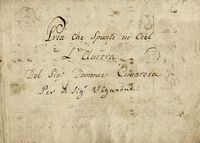 Pria che Spunti in Ciel
L'Aurora
Del Sig.r Domenico Cimarosa
Per il Sig.r Viganoni